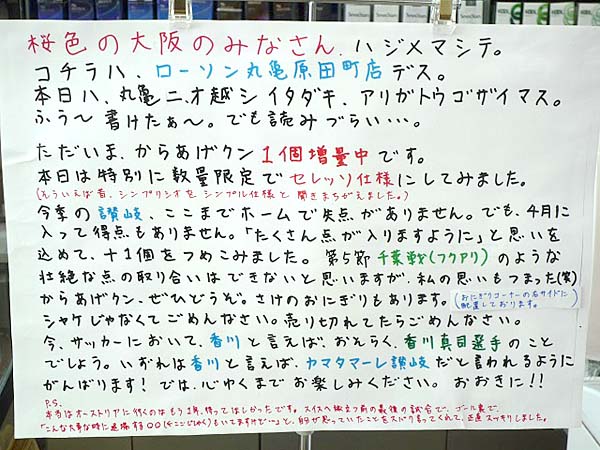 桜色の大阪のみなさん、ハジメマシテ。
コチラハ、ローソン丸亀原田町店デス。
本日ハ、丸亀ニオ越シイタダキ、アリガトウゴザイマス。
ふぅ〜 書けたぁ〜。でも読みづらい…。
ただいま、からあげクン 1個増量中です。
本日は特別に数量限定でセレッソ仕様にしてみました。
(そういえば昔、シンプリシオをシンプル仕様と聞きまちがえました。)
今季の讃岐、ここまでホームで失点がありません。でも、4月に
入って得点もありません。「たくさん点が入りますように」と思いを
込めて、+1個をつめこみました。第5節 千葉戦(フクアリ)のような
壮絶な点の取り合いはできないと思いますが、私の思いもつまった(笑)
からあげクン、ぜひどうぞ。さけのおにぎりもあります。(おにぎりコーナーの右サイドに配置しております。)
シャケじゃなくてごめんなさい。売り切れてたらごめんなさい。
今、サッカーにおいて、香川と言えば、おそらく、香川真司選手のこと
でしょう。いずれは香川と言えば、カマタマーレ讃岐だと言われるように
がんばります! では、心ゆくまでお楽しみください。おおきに!!
P.S.
本当はオーストリアに行くのはもう1年、待ってほしかったです。スイスへ旅立つ前の最後の試合で、ゴール裏で、
「こんな大事な時に退場する〇〇(そこにじゃなく)もいてますけど…」と、自分が思っていたことをズバリ言ってくれて、正直スッキリしました。